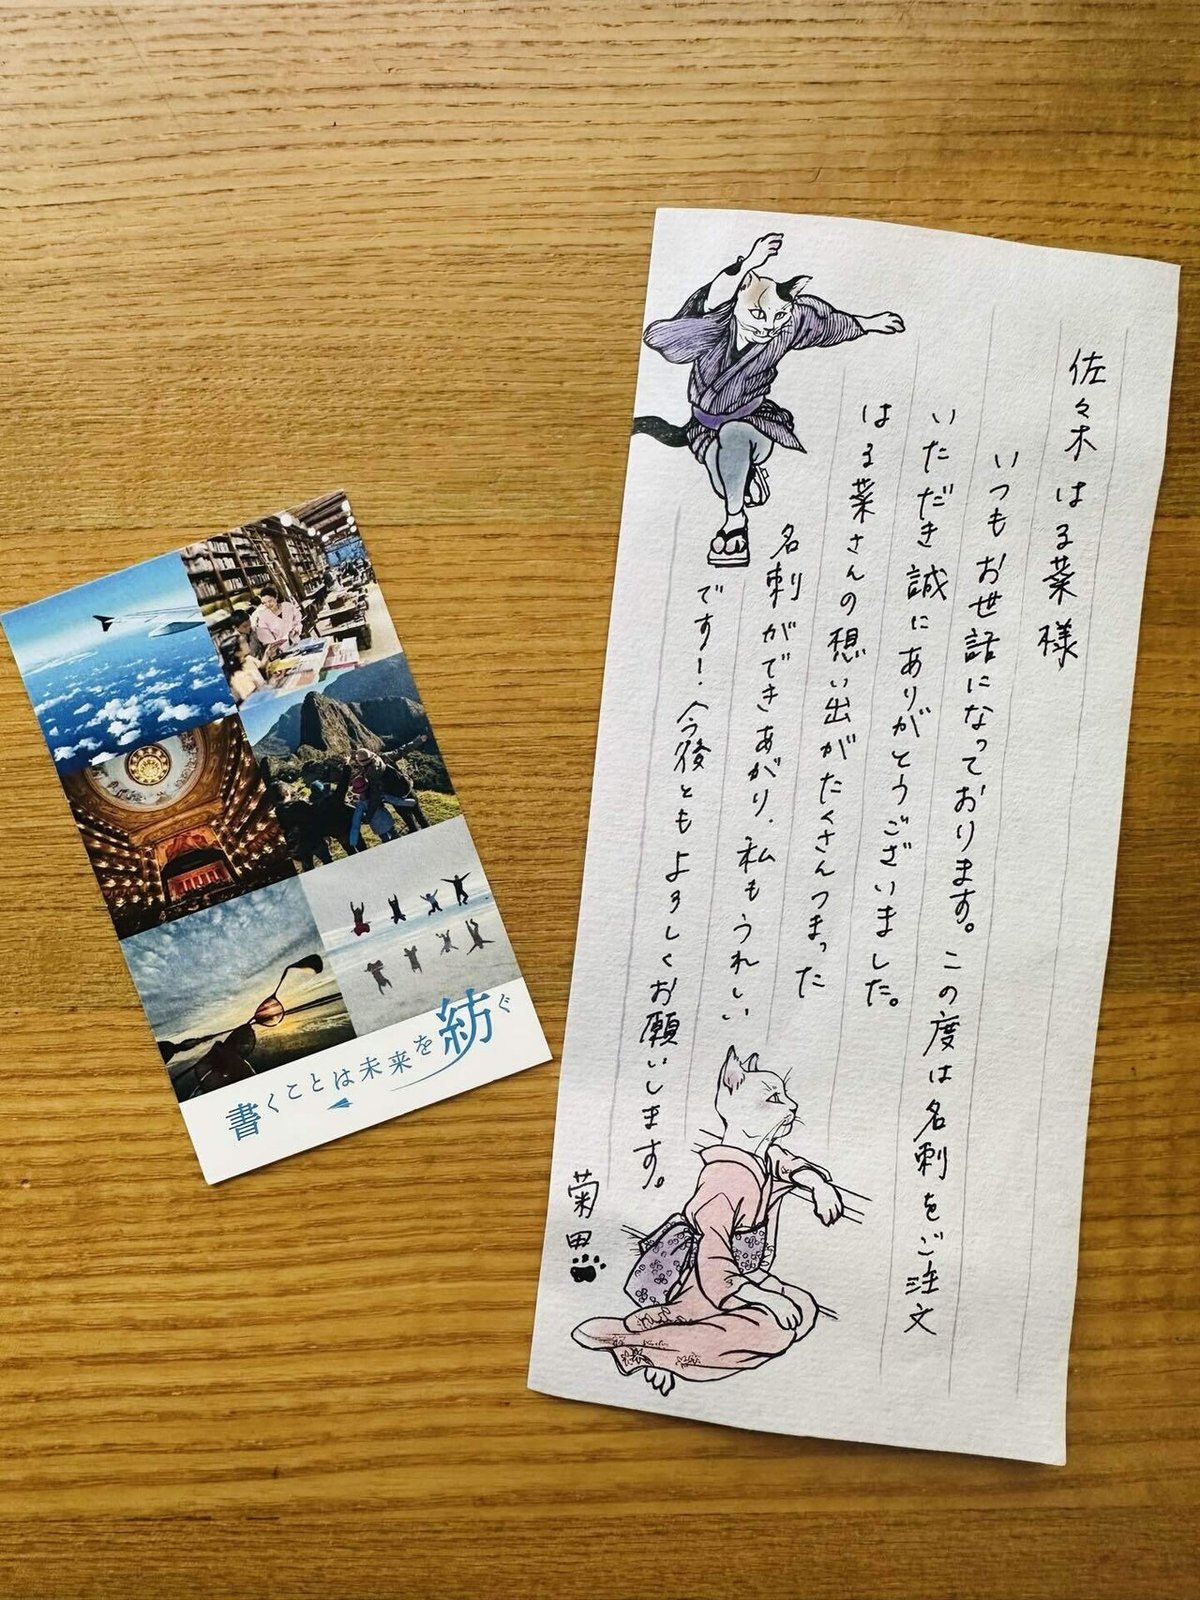 佐々木はる菜様
いつもお世話になっております。この度は名刺をご注文
いただき誠にありがとうございました。
はる菜さんの想い出がたくさんつまった
名刺ができあがり、私もうれしい
です！今後ともよろしくお願いします。
菊田
書くことは未来を紡ぐ